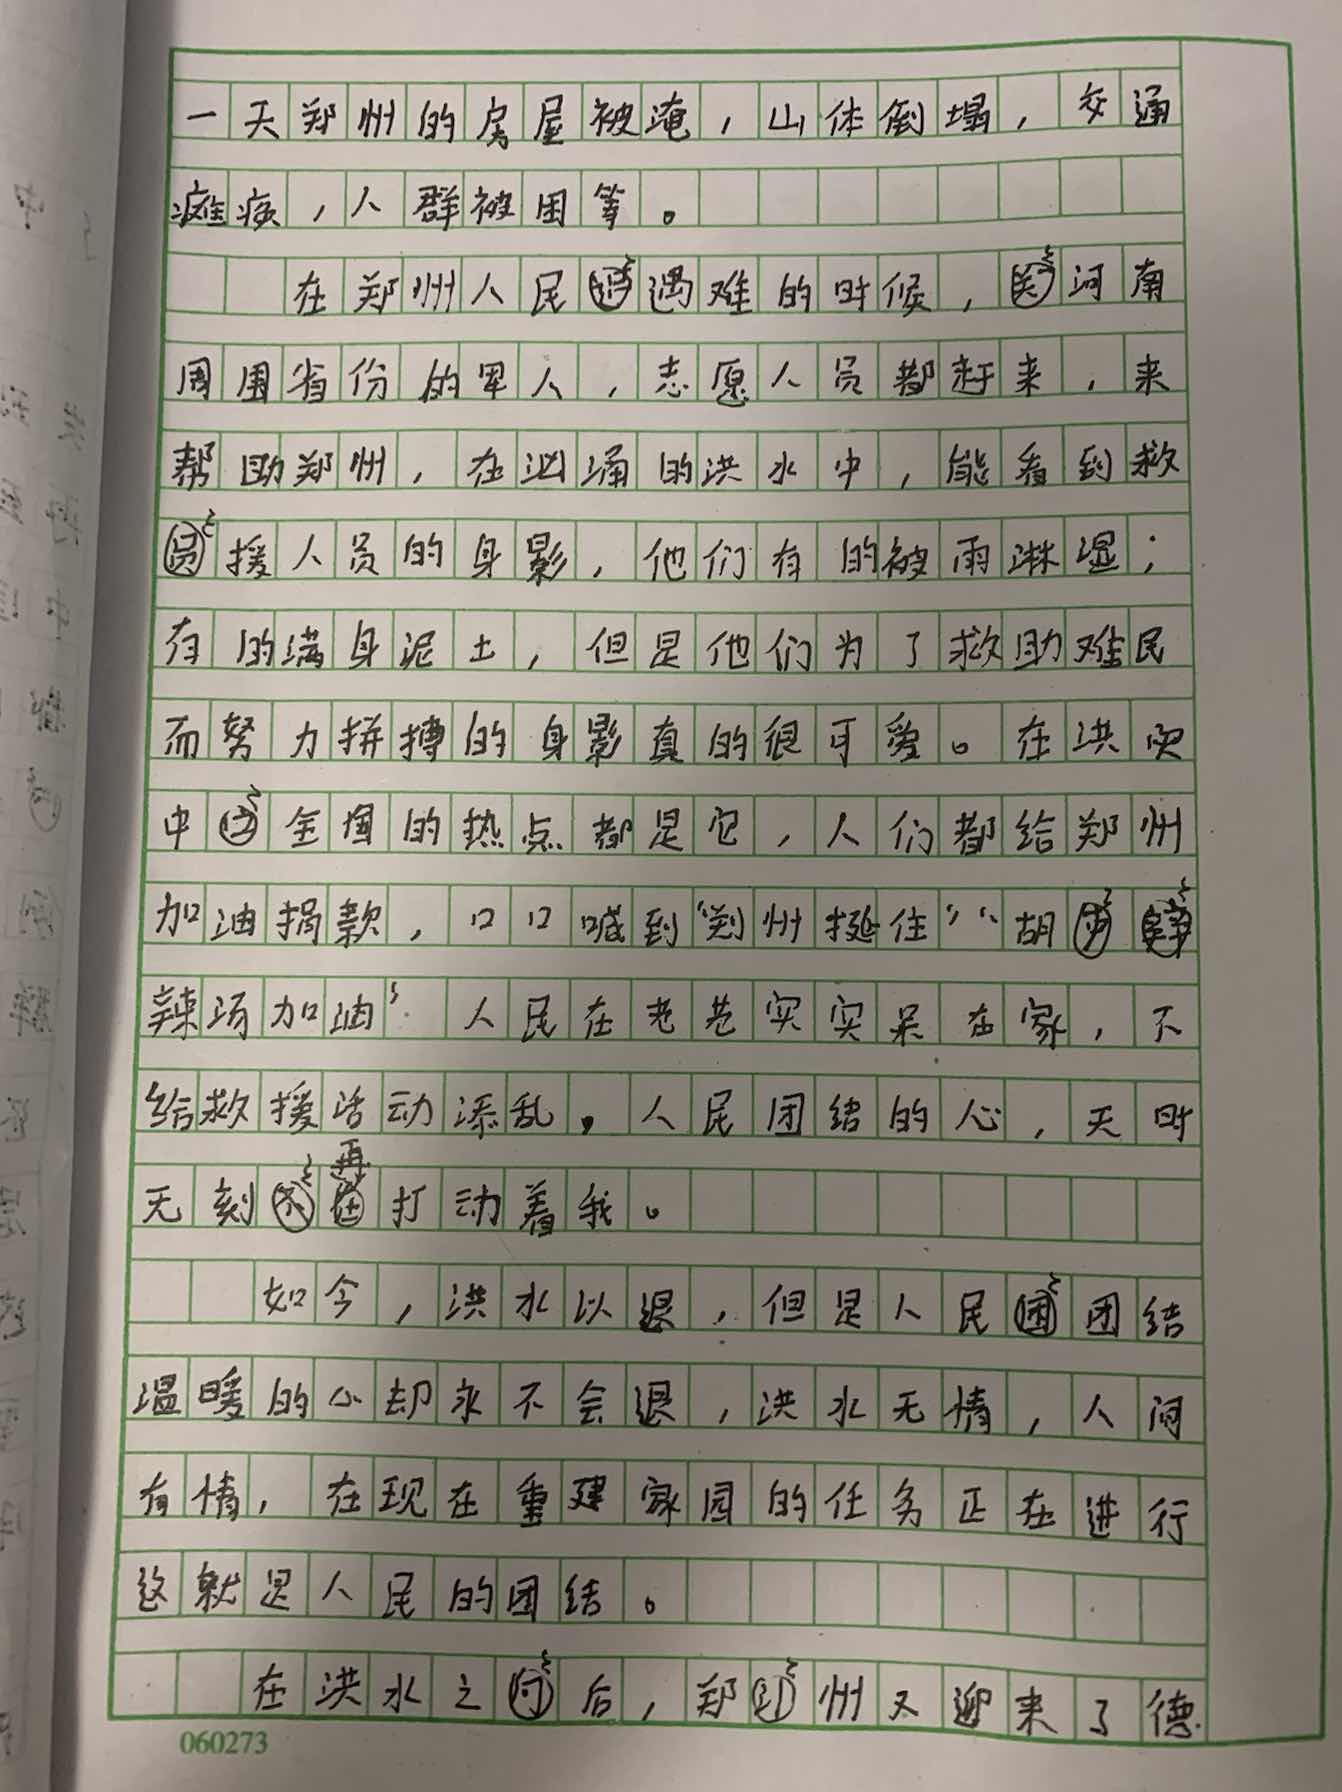 一天郑州的房屋被淹，山体倒塌，交通
瘫痪，人群被困等。
在郑州人民遇难的时候，河南
周围省份的军人，志愿人员都赶来，来
帮助郑州，在汹涌的洪水中，能看到救
援人员的身影，他们有的被雨淋湿；
有的满身泥土，但是他们为了救助难民
而努力拼搏的身影真的很可爱。在洪灾
中全国的热点都是它，人们都给郑州
加油捐款，口口喊到“郑州挺住”“胡
辣汤加油”人民在老老实实呆在家，不
给救援活动添乱。人民团结的心，无时
无刻再打动着我。
如今，洪水以退，但是人民团结
温暖的心却永不会退，洪水无情，人间
有情，在现在重建家园的任务正在进行
这就是人民的团结。
在洪水之后，郑州又迎来了德
060273